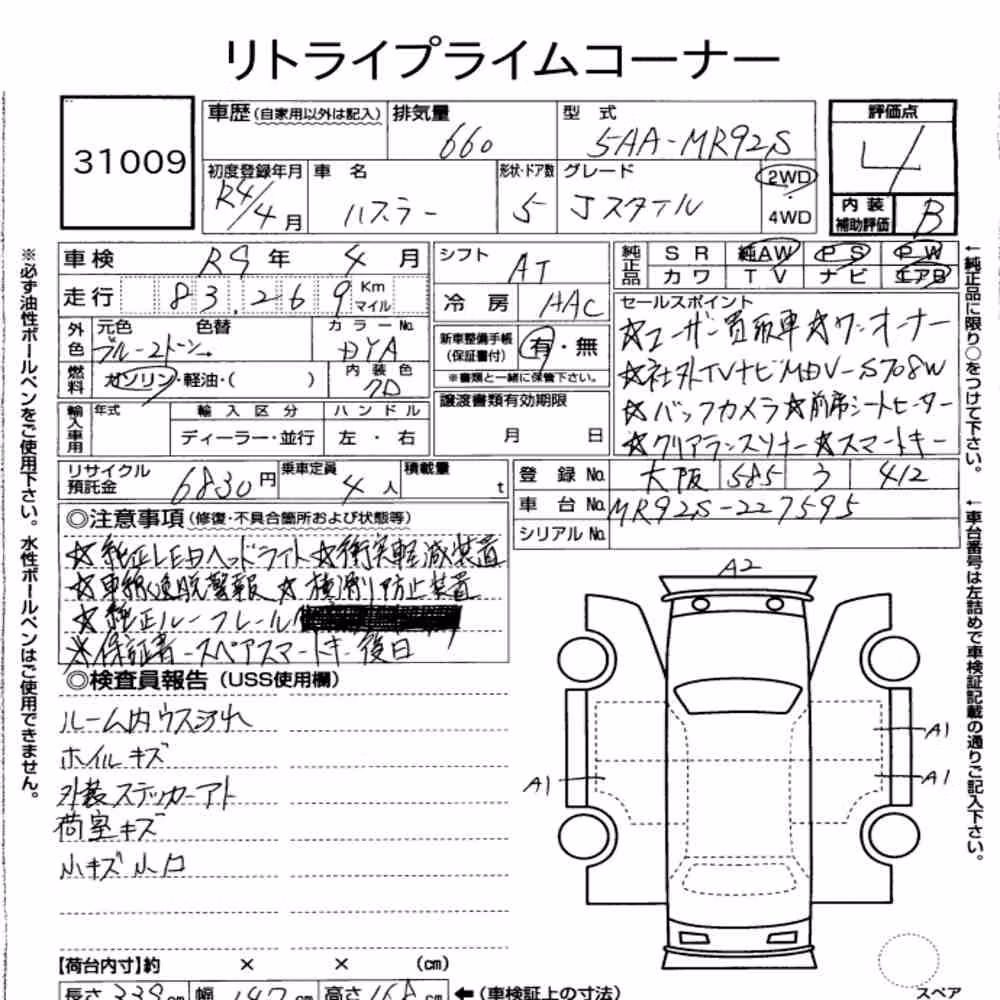 リトライプライムコーナー
31009
車歴(自家用以外は記入) 排気量 660 型式 5AA-MR92S
評価点 4
初度登録年月 R4/4月 車名 ハスラー 形状・ドア数 5 グレード Jスタイル 2WD 4WD
内装補助評価 B
車検 R9年 4月 シフト AT
純正品 SR 純AW PS PW
カワ TV ナビ エアB
走行 83,269 Km マイル 冷房 AAC
セールスポイント
外色 元色 色替 カラーNo.
ブルー2トーン DYA
新車整備手帳(保証書付) 有・無
※書類と一緒に保管下さい。
★ユーザー買取車★ワンオーナー
★社外TVナビMDV-S708W
★バックカメラ★前席シートヒーター
★クリアランスソナー★スマートキー
燃料 ガソリン・軽油・( ) 内装色
譲渡書類有効期限
月 日
輸入車用 年式 輸入区分 ハンドル
ディーラー・並行 左・右
リサイクル預託金 6830円 乗車定員 4人 積載量 t
登録No. 大阪 585 う 412
車台No. MR92S-227595
シリアルNo.
◎注意事項(修復・不具合箇所および状態等)
★純正LEDヘッドライト★衝突軽減装置
★車線逸脱警報★横滑り防止装置
★純正ルーフレール
※保証書-スペアスマートキー後日
◎検査員報告(USS使用欄)
ルーム内ウス汚れ
ホイルキズ
外装ステッカーアト
荷室キズ
小キズ小凹
A2
A1
A1
A1
【荷台内寸】約 × × (cm)
長さ 339cm 幅 147cm 高さ 168cm ←(車検証上の寸法)
スペア
※必ず油性ボールペンをご使用下さい。水性ボールペンはご使用できません。
←純正品に限り○をつけて下さい。
←車台番号は左詰めで車検証記載の通りご記入下さい。